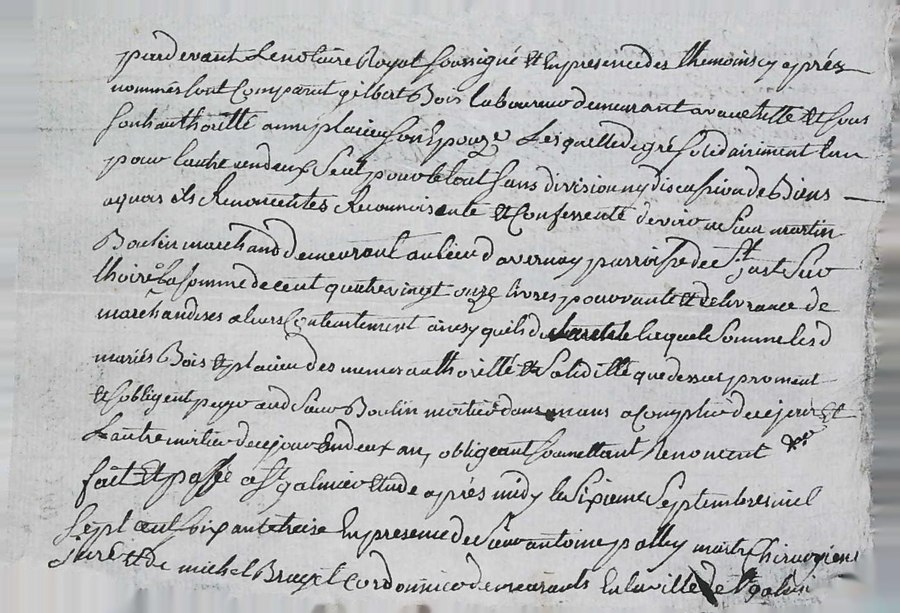 pardevant Le notaire Royal soussigné et En presence des themoins cy aprés
nommés sont Comparut gilbert Bois laboureur demeurant a vauchette et sous
son hauthorité anne plaieu son Epouze Lesquelles de gré solidairiment l'un
pour lautre un deux Seul pour le tout sans division ny discution de Biens
a quois ils Renoncentes Reconnoisente et Confessente devoir au Sieur martin
Boulin marchand demeurant au lieu d'avernay parroisse de St just Sur
lhoire la somme de cent quatre vingt onze livres pour vante et delivrance de
marchandises a leurs Contentement ainsy quils d laquele Somme lesd
mariés Bois et plaieu des memes authorité et Soliditté que dessus proment
et sobligent payer aud Sieur Boulin moitier dans un ans a Comptér de ce jour Et
Lautre moitier de ce jour En deux an, obligeant soumettant Renoncent
fait Et passé a St galmier Etude aprés midy le Sixieme Septembre mil
Sept cent soixante treise En presence de Sieur antoine maitre Chirurgiens
juré Et de michel Cordonnier demeurants En la ville de St galmi